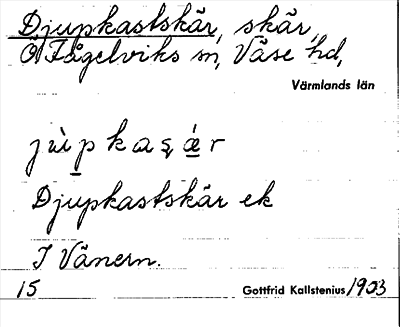 Djupkastskär, skär,
Ö Fågelviks sn, Väse hd,
Värmlands län
Djupkastskär ek
I Vänern.
15 Gottfrid Kallstenius 1903